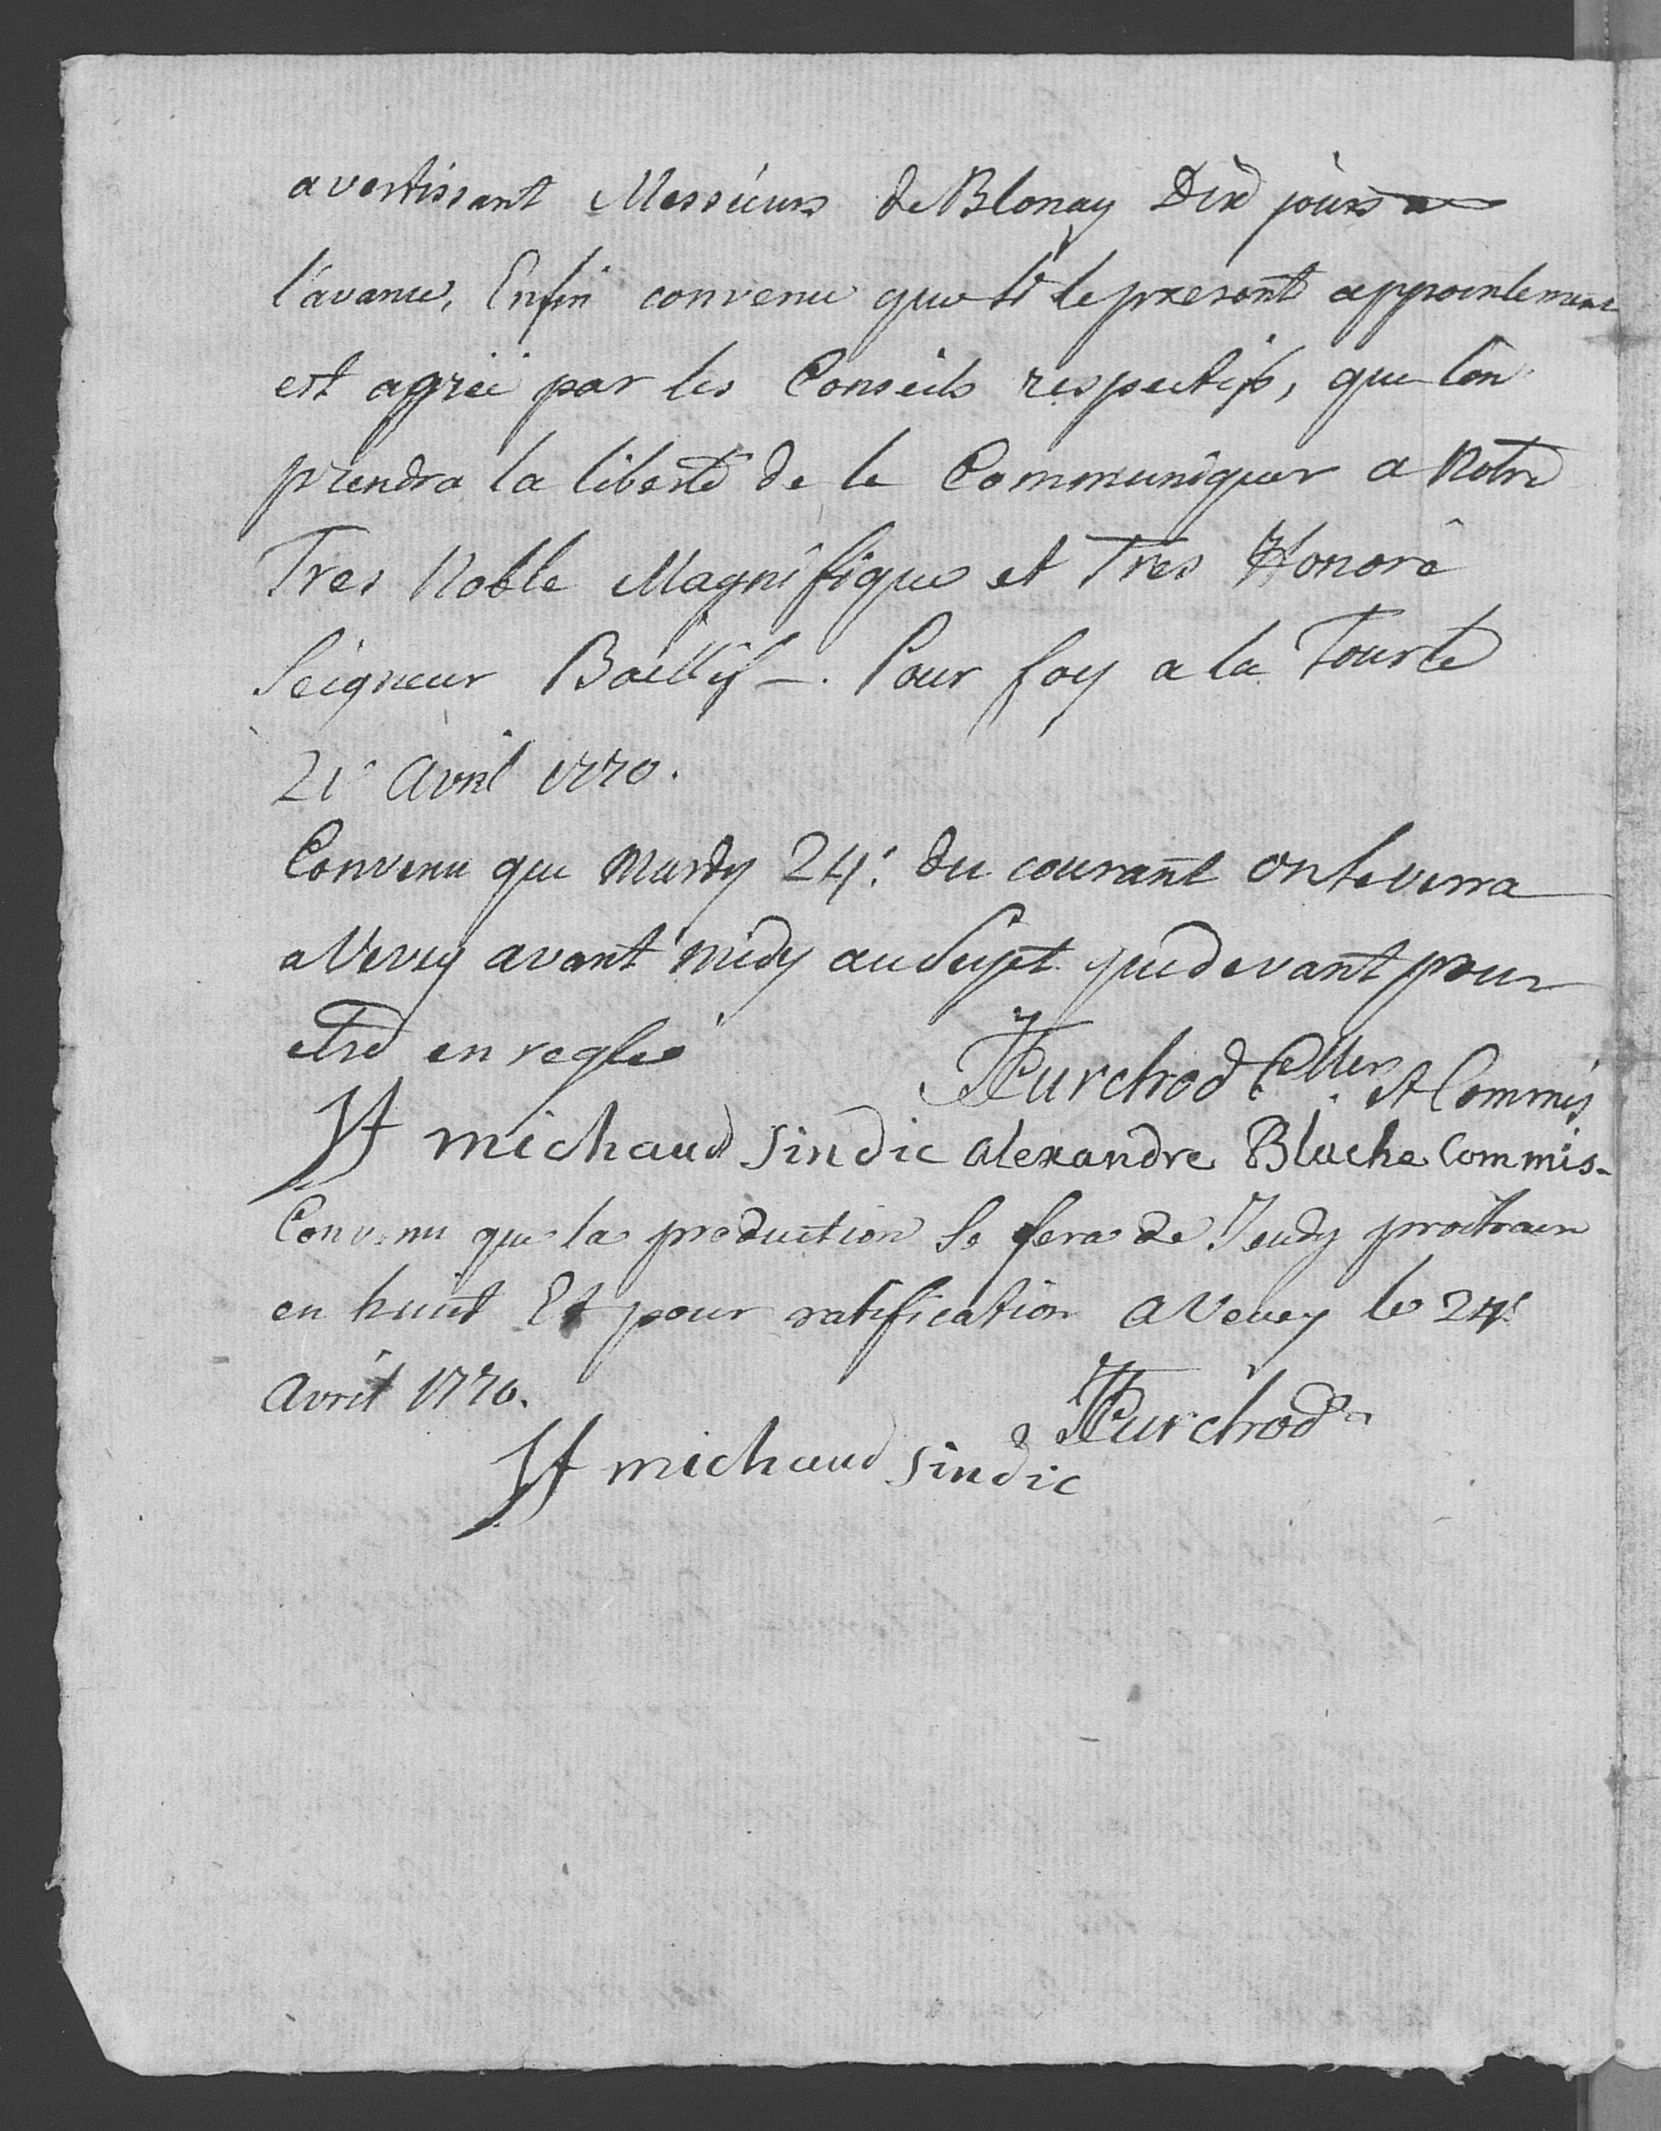 avertissant Messieurs de Blonay Dix jours a
l'avance, Enfin convenu que si le present appointement
est agréé par les Conseils respectifs, que lon
prendra la liberté de le Communiquer a Notre
Tres Noble Magnifique et Tres Honoré
Seigneur Baillif –. Pour foy a la Tour le
21e Avril 1770.
Convenu que Mardy 24e. du courant on se verra
a Vevey avant midy au Sujet que devant pour
etre en regle
Curchod Cellier. et Commis
michaud Sindic alexandre Bluche Commis-
Convenu que la production se fera de Jeudy prochain
en huict Et pour ratification a Vevey le 24e
Avril 1770.
Curchod
michaud Sindic